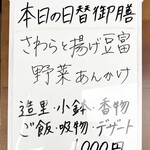 本日の日替御膳
さわらと揚げ豆富
野菜あんかけ
造里・小鉢・香物
ご飯・吸物・デザート
1000円